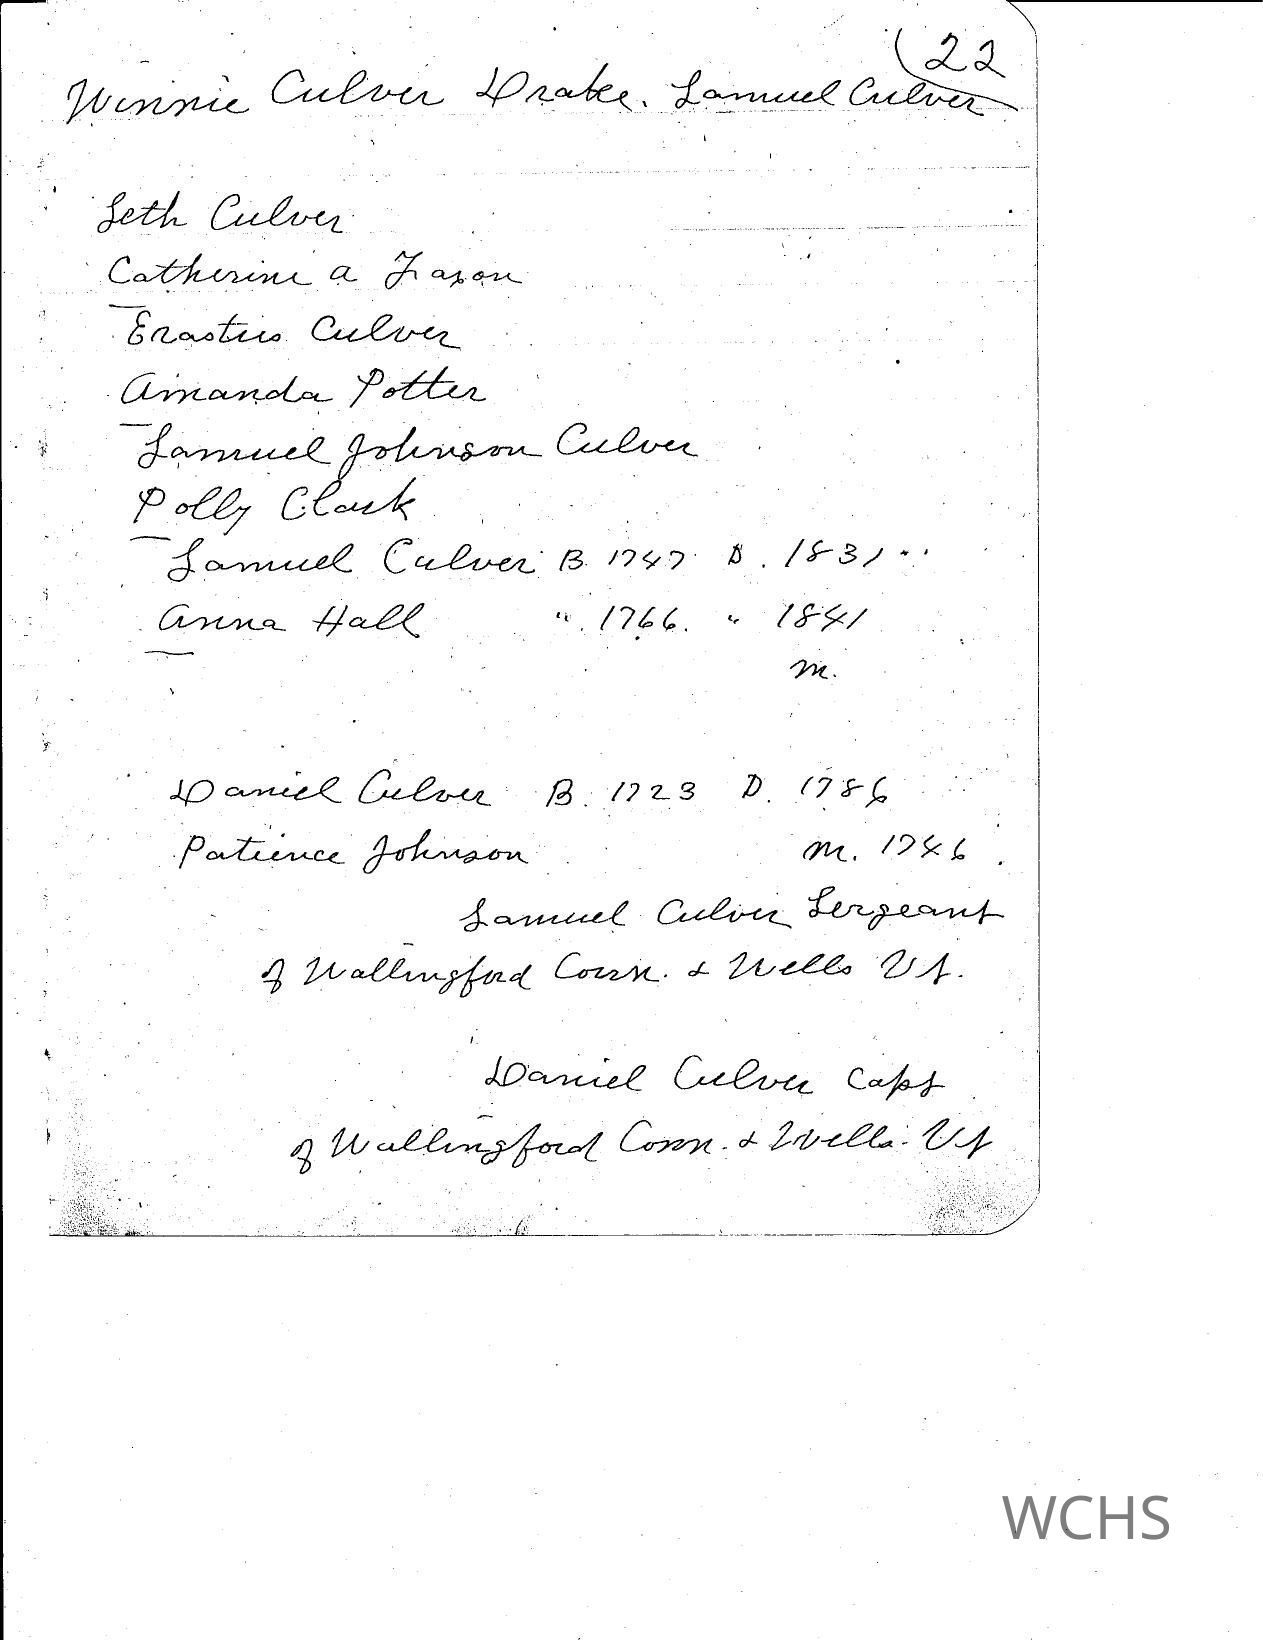 22
Winnie Culver Drake. Samuel Culver
Seth Culver
Catherine a Faxon
Erastus Culver
Amanda Potter
Samuel Johnson Culver
Polly Clark
Samuel Culver B 1747 D. 1831
Anna Hall " 1766. " 1841
m.
Daniel Culver B. 1723 D. 1786
Patience Johnson m. 1746.
Samuel Culver Sergeant
of Wallingford Conn. & Wells Vt.
Daniel Culver Capt
of Wallingford Conn. & Wells. Vt
WCHS